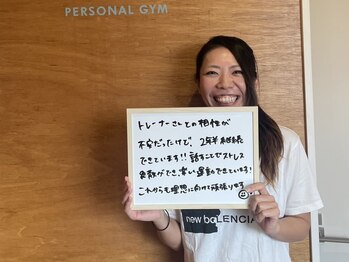 PERSONAL GYM
トレーナーさんとの相性が
不安だったけど、2年半継続
できています!! 話すことでストレス
発散ができ、楽しい運動できています!
これからも理想に向けて頑張ります
new balENCIA